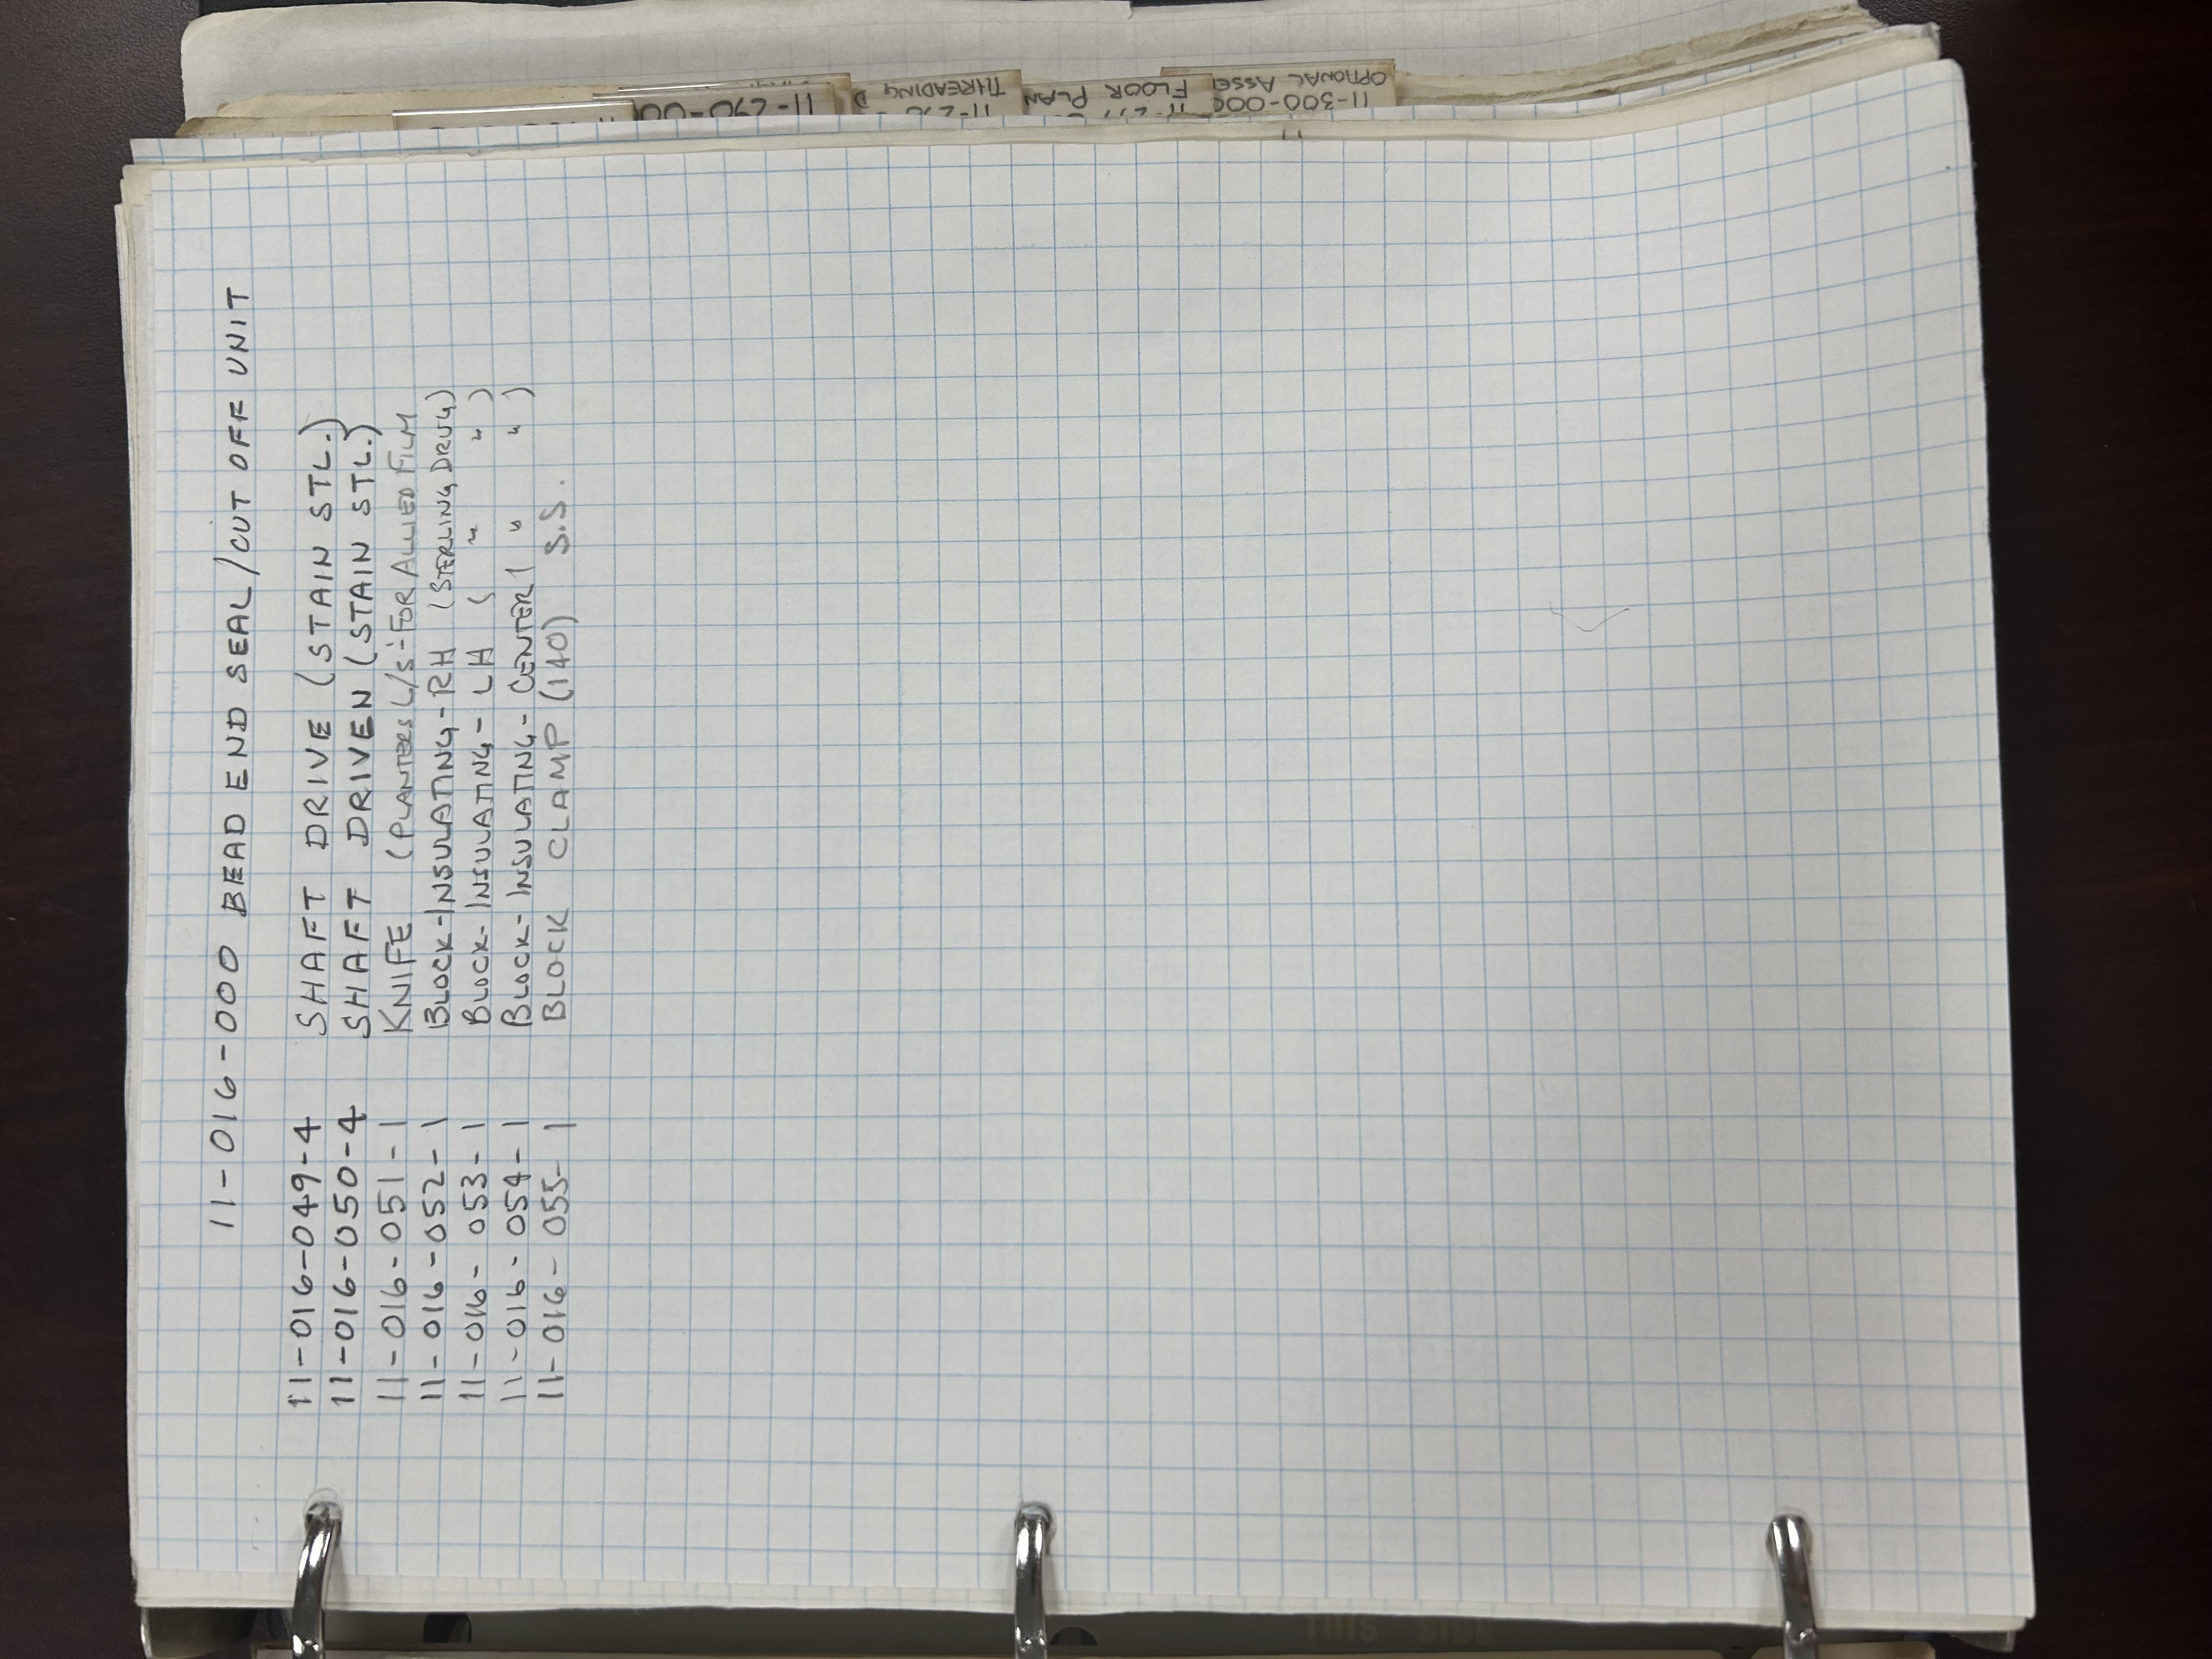 11-016-000 BEAD END SEAL/CUT OFF UNIT
11-016-049-4 SHAFT DRIVE (STAIN STL.)
11-016-050-4 SHAFT DRIVEN (STAIN STL.)
11-016-051-1 KNIFE (PLANTERS L/S-FOR ALLIED FILM
11-016-052-1 BLOCK-INSULATING-RH (STERLING DRUG)
11-016-053-1 BLOCK-INSULATING-LH ( " " )
11-016-054-1 BLOCK-INSULATING-CENTER ( " " )
11-016-055-1 BLOCK CLAMP (140) S.S.
11-290-00
THREADING D
FLOOR PLAN
11-300-000
OPTIONAL ASSE
THIS SIDE